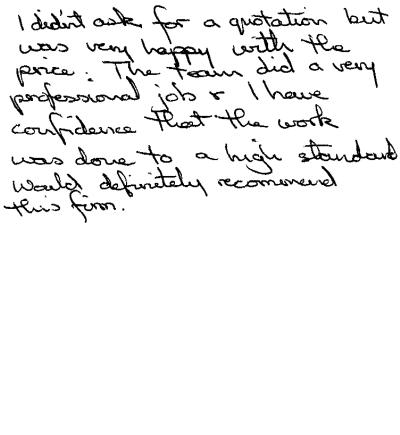 I didn't ask for a quotation but
was very happy with the
price. The team did a very
professional job & I have
confidence that the work
was done to a high standard
Would definitely recommend
this firm.